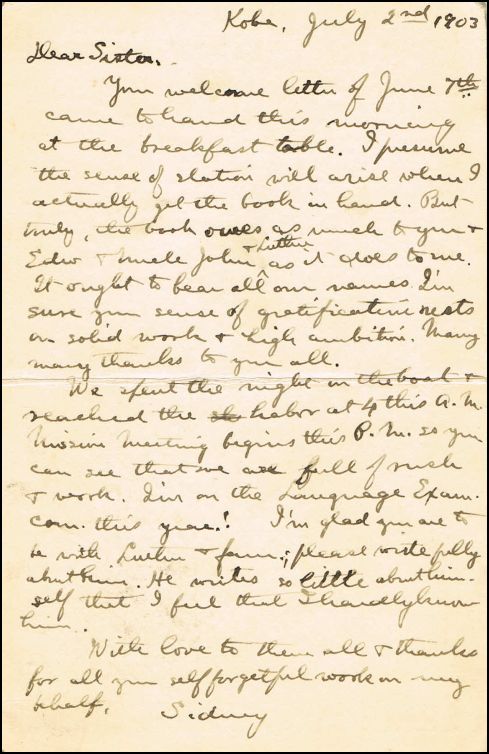 Kobe, July 2nd 1903
Dear Sister,
Your welcome letter of June 7th
came to hand this morning
at the breakfast table. I presume
the sense of elation will arise when I
actually get the book in hand. But
truly, the book owes as much to you &
Edw & Uncle John & Luther as it does to me.
It ought to bear all our names. I'm
sure your sense of gratification rests
on solid work & high ambition. Many
many thanks to you all.
We spent the night on the boat &
reached the habor at 4 this A.M.
Mission Meeting begins this P.M. so you
can see that we are full of rush
& work. I'm on the Language Exam.
com. this year! I'm glad you are to
be with Luther & fam.; please write fully
about him. He writes so little about him-
self that I feel that I hardly know
him.
With love to them all & thanks
for all your selfforgetful work on my
behalf,
Sidney